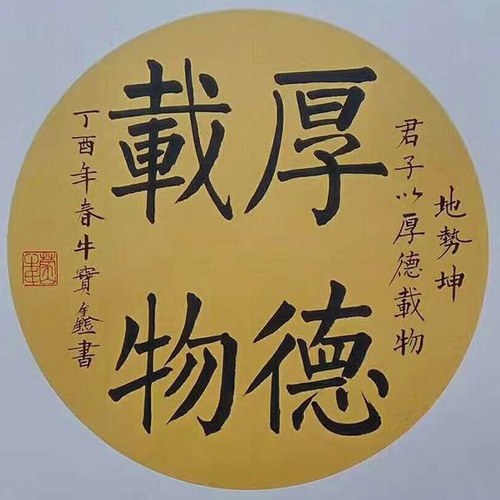 地勢坤
君子以厚德載物
厚德
載物
丁酉年春牛寶鑫書